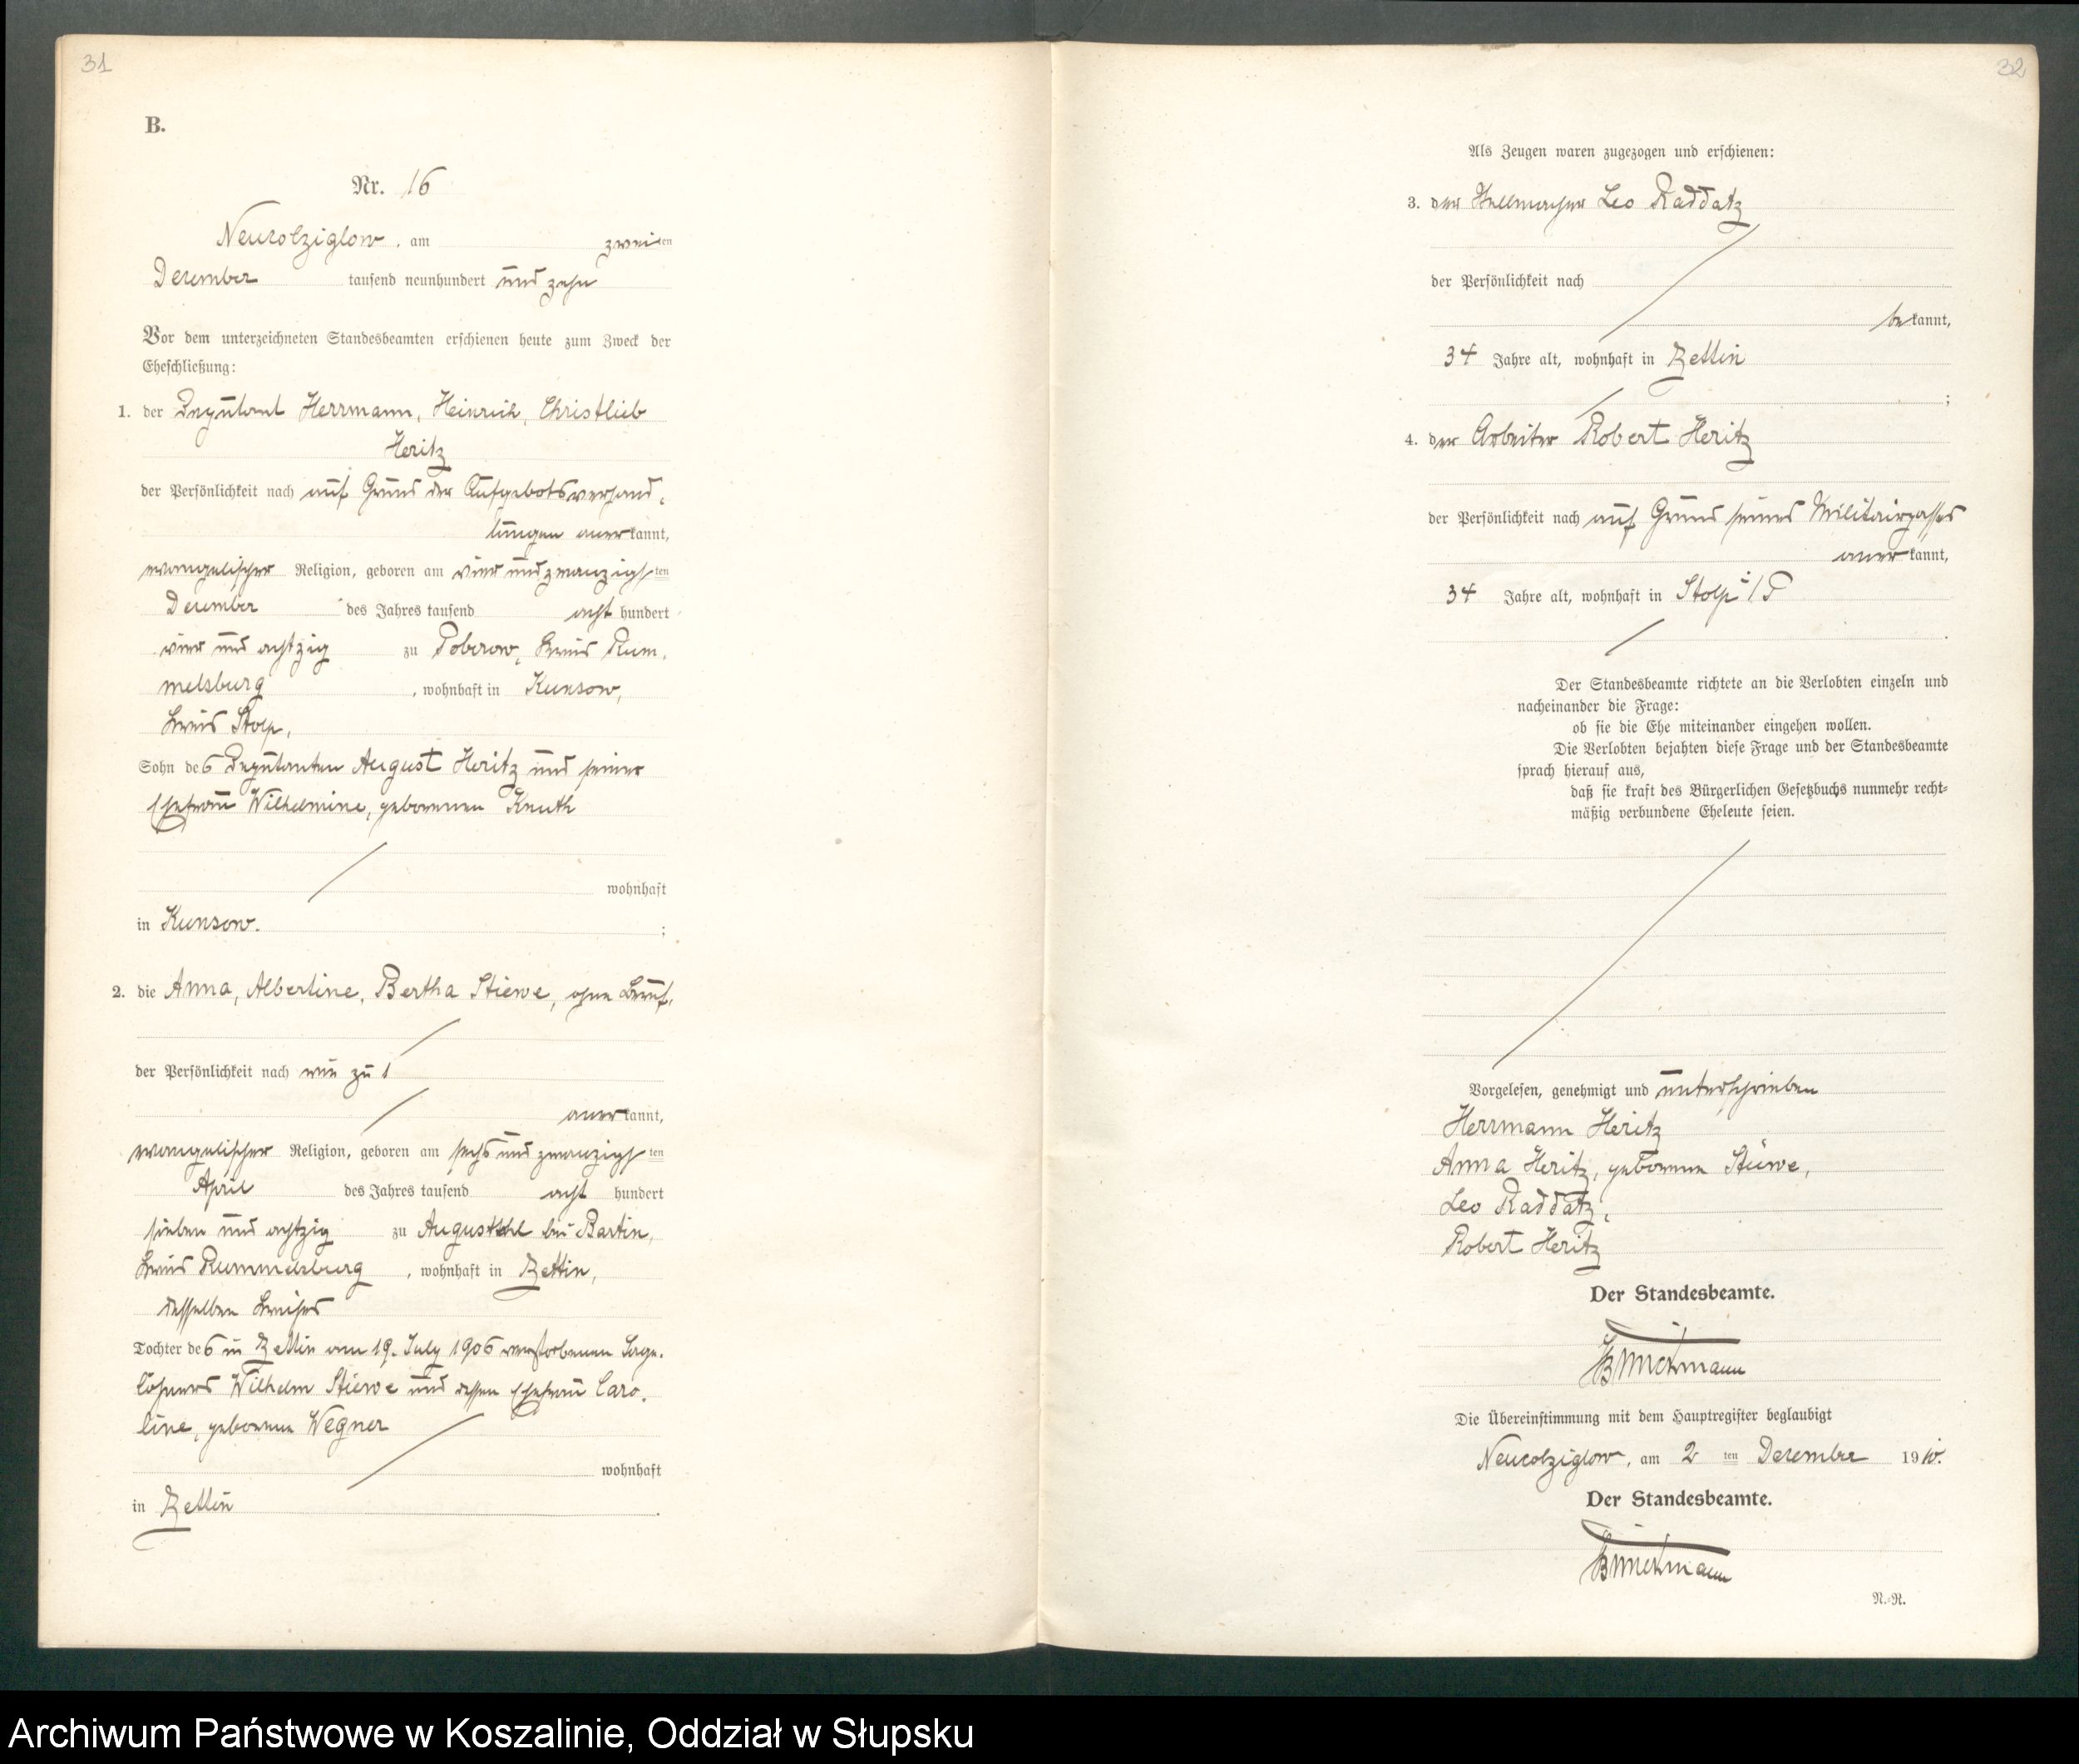 31
B.
Nr. 16
Neukolziglow, am zweiten
Dezember tausend neunhundert und zehn
Vor dem unterzeichneten Standesbeamten erschienen heute zum Zweck der
Eheschließung:
1. der Deputant Herrmann, Heinrich, Christlieb
Heritz
der Persönlichkeit nach auf Grund der Aufgebotsverhand-
lungen anerkannt,
evangelischer Religion, geboren am vier und zwanzigsten
Dezember des Jahres tausend acht hundert
vier und achtzig zu Poberow, Kreis Rum-
melsburg, wohnhaft in Kunsow,
Kreis Stolp,
Sohn des Deputanten August Heritz und seiner
Ehefrau Wilhelmine, geborenen Knuth
wohnhaft
in Kunsow. ;
2. die Anna, Albertine, Bertha Stiewe, ohne Beruf,
der Persönlichkeit nach wie zu 1
anerkannt,
evangelischer Religion, geboren am sechs und zwanzigsten
April des Jahres tausend acht hundert
sieben und achtzig zu bei Bartin,
Kreis Rummelsburg, wohnhaft in Zettin,
desselben Kreises
Tochter des in Zettin am 19. July 1906 verstorbenen Tage-
löhners Wilhelm Stiewe und dessen Ehefrau Caro-
line, geborenen Wegner
wohnhaft
in Zettin.
32
Als Zeugen waren zugezogen und erschienen:
3. der Leo Raddatz
der Persönlichkeit nach
bekannt,
34 Jahre alt, wohnhaft in Zettin
;
4. der Arbeiter Robert Heritz
der Persönlichkeit nach auf Grund seines Militairpasses
anerkannt,
34 Jahre alt, wohnhaft in Stolp i/P
.
Der Standesbeamte richtete an die Verlobten einzeln und
nacheinander die Frage:
ob sie die Ehe miteinander eingehen wollen.
Die Verlobten bejahten diese Frage und der Standesbeamte
sprach hierauf aus,
daß sie kraft des Bürgerlichen Gesetzbuchs nunmehr recht-
mäßig verbundene Eheleute seien.
Vorgelesen, genehmigt und unterschrieben
Herrmann Heritz
Anna Heritz, geborene Stiewe,
Leo Raddatz,
Robert Heritz
Der Standesbeamte.
Die Übereinstimmung mit dem Hauptregister beglaubigt
Neukolziglow, am 2 ten Dezember 1910.
Der Standesbeamte.
N.-R.
Archiwum Państwowe w Koszalinie, Oddział w Słupsku